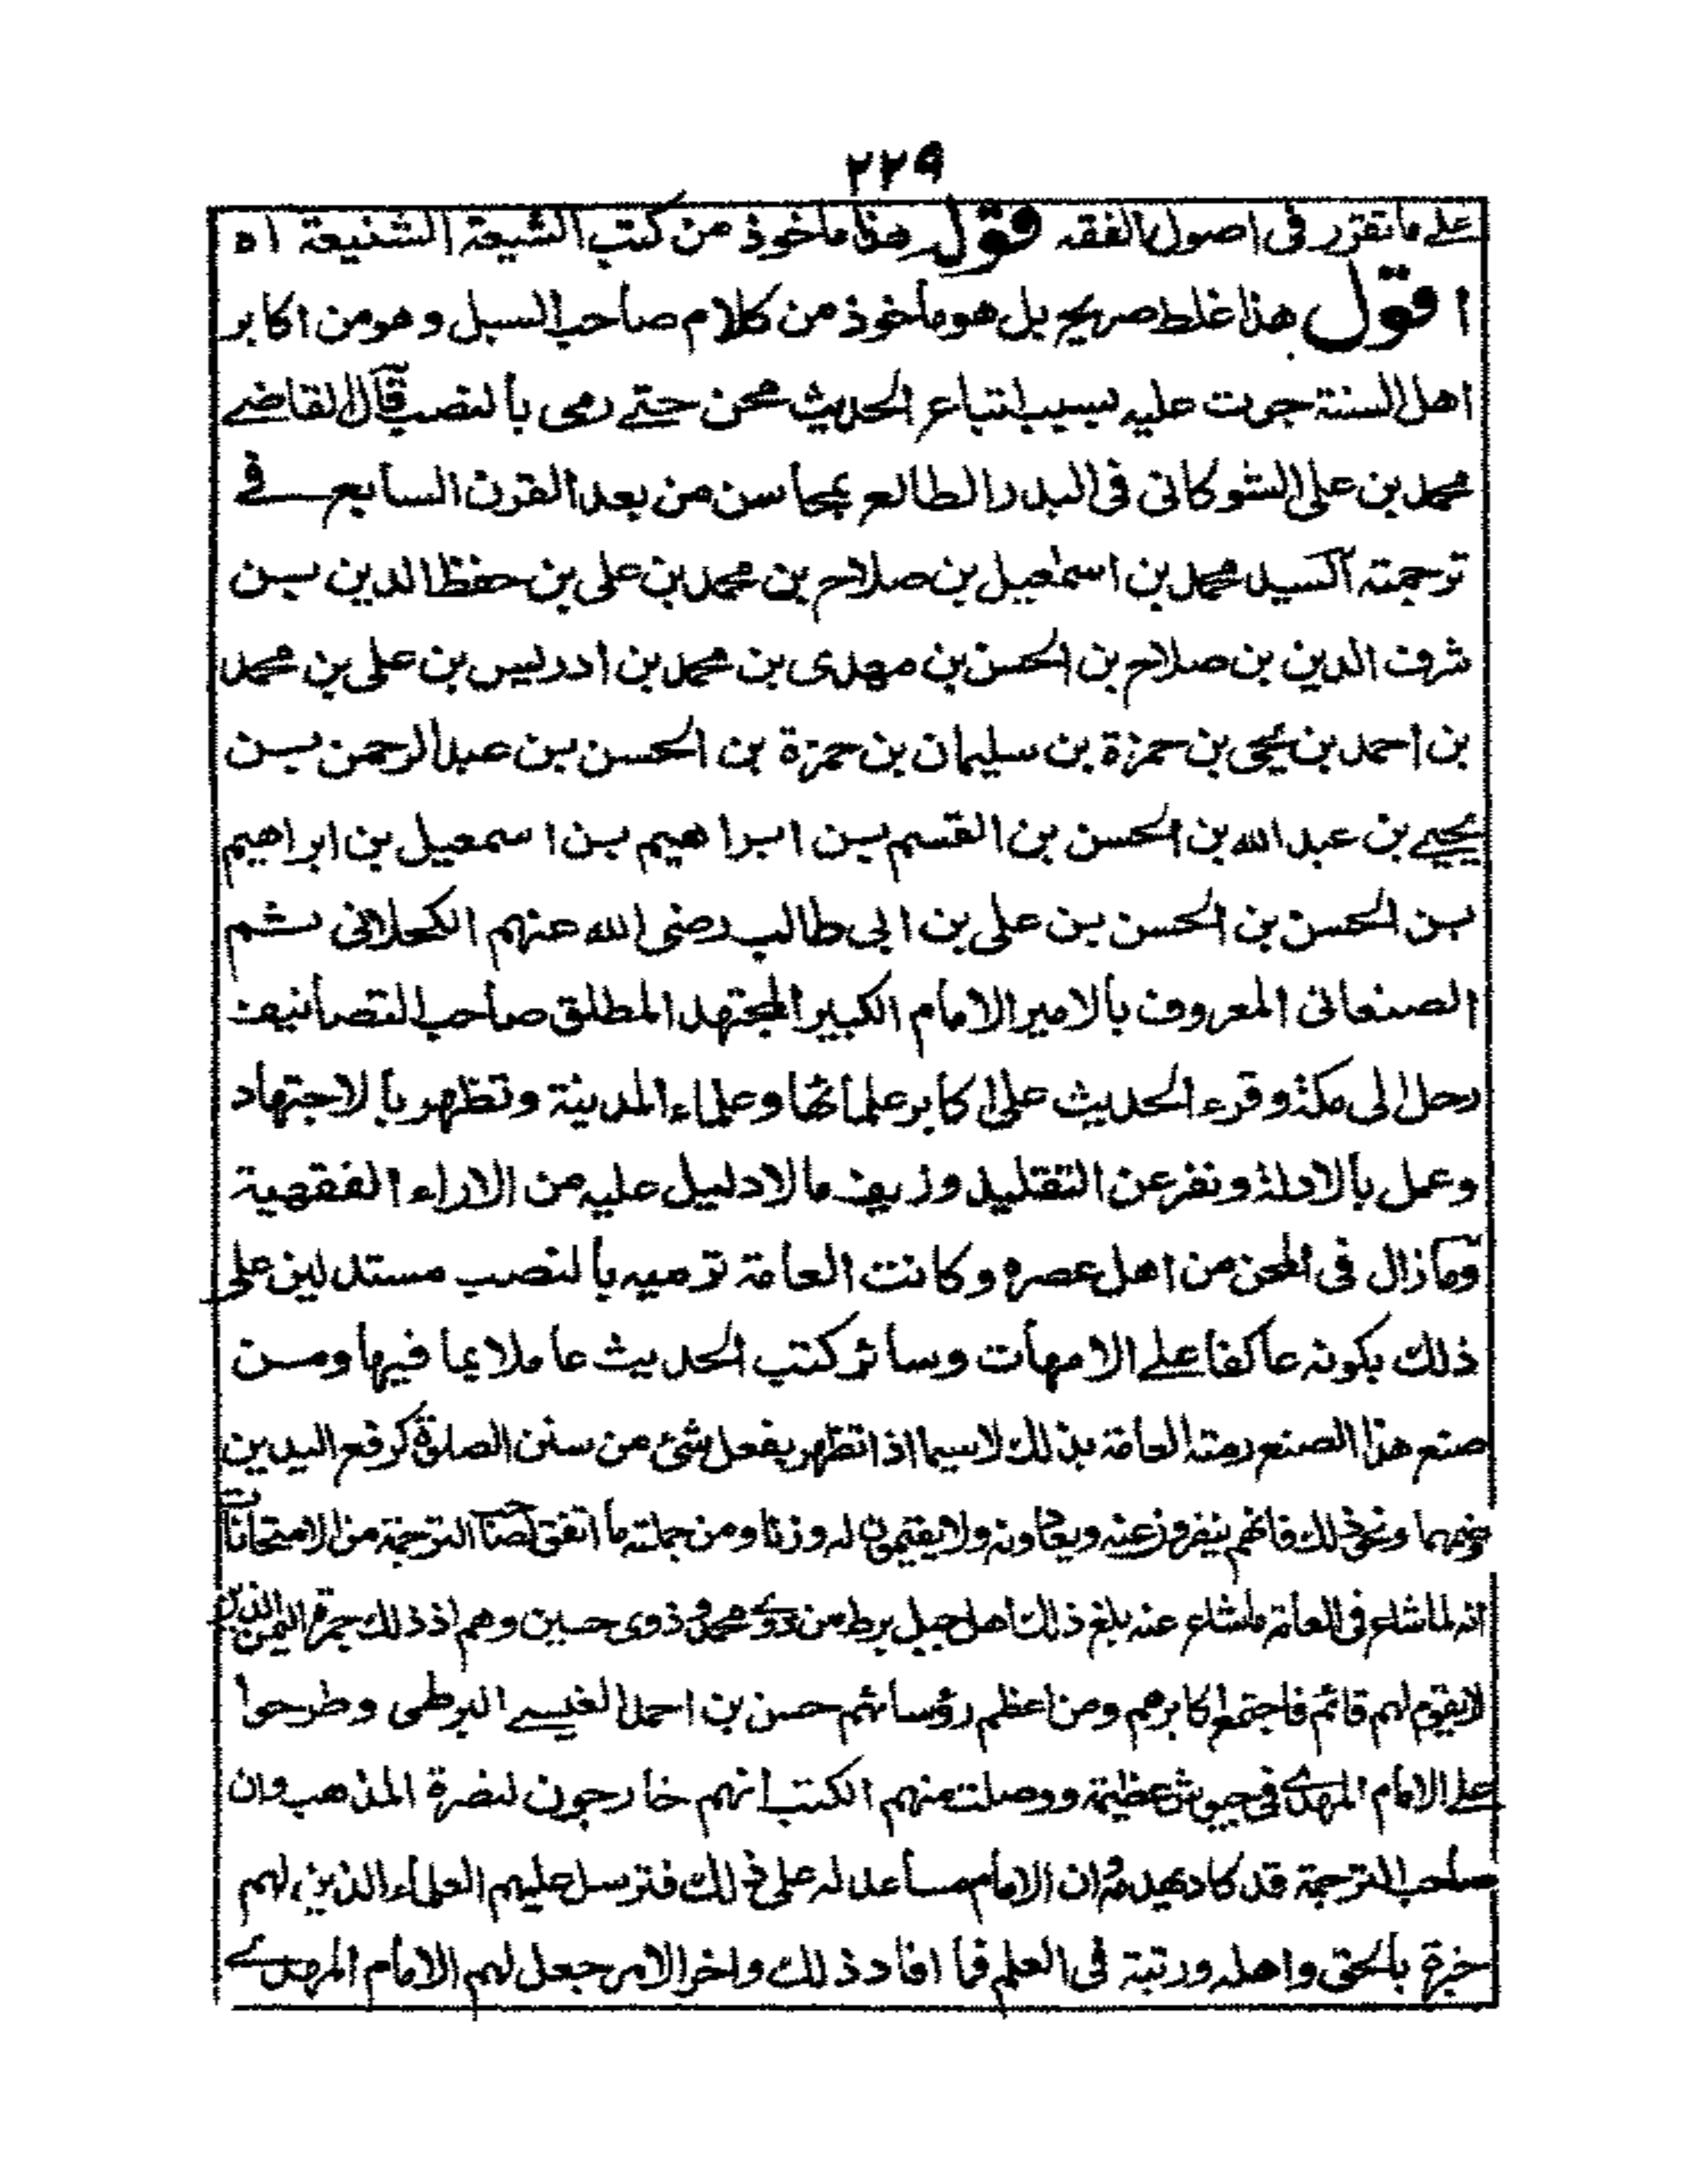 ٢٢٩
علے ما تقرر فى اصول الفقه قوله هذا ماخوذ من كتب الشيعة الشنيعة اه
اقول هذا غلط صريح بل هو مأخوذ من كلام صاحب السبل وهو من اكابر
اهل السنة جرت عليه بسبب اتباع الحديث محن حتے رمى بالنصب قال القاضے
محمد بن على الشوكانى فى البدر الطالع بمحاسن من بعد القرن السابع فے
ترجمته السيد محمد بن اسمٰعيل بن صلاح بن محمد بن على بن حفظ الدين بن
شرف الدين بن صلاح بن الحسن بن مهدى بن محمد بن ادريس بن على بن محمد
بن احمد بن يحيى بن حمزة بن سليمان بن حمزة بن الحسن بن عبد الرحمن بن
يحيے بن عبد الله بن الحسن بن القسم بن ابراهيم بن اسمعيل بن ابراهيم
بن الحسن بن الحسن بن على بن ابى طالب رضى الله عنهم الكحلانى ثم
الصنعانى المعروف بالامير الامام الكبير المجتهد المطلق صاحب التصانيف
رحل الى مكة وقرء الحديث على اكابر علمائها وعلماء المدينة وتظهر بالاجتهاد
وعمل بالادلة ونفر عن التقليد وزيف مالا دليل عليه من الاراء الفقهية
وما زال فى المحن من اهل عصره وكانت العامة ترميه بالنصب مستدلين على
ذلك بكونه عاكفا علے الامهات وسائر كتب الحديث عاملا بما فيها ومن
صنع هذا الصنع رمته العامة بذلك لاسيما اذا تظهر بفعل شئ من سنن الصلوة كرفع اليدين
وضمهما ونحو ذلك فانهم ينفرون عنه ويعادونه ولا يقيمون له وزنا ومن جملته ما اتفق لصاحب الترجمة من الامتحانات
انه لما شاع فى العامة ما شاع عنه بلغ ذلك اهل جبل برط من ذوے محمد و ذوى حسين وهم اذ ذلك جمرة اليمن الذين
لا يقوم لهم قائم فاجتمع اكابرهم ومن اعظم رؤسائهم حسن بن احمد العنسے البرطى وطرحوا
علے الامام المهدے فى جيوش عظيمة ووصلت منهم الكتب انهم خارجون لنصرة المذهب وان
صاحب الترجمة قد كاد يهدمه وان الامام مساعد له على ذلك فترسل عليهم العلماء الذين لهم
خبرة بالحق واهله ورتبة فى العلم فما افاد ذلك واخر الامر جعل لهم الامام المهدے